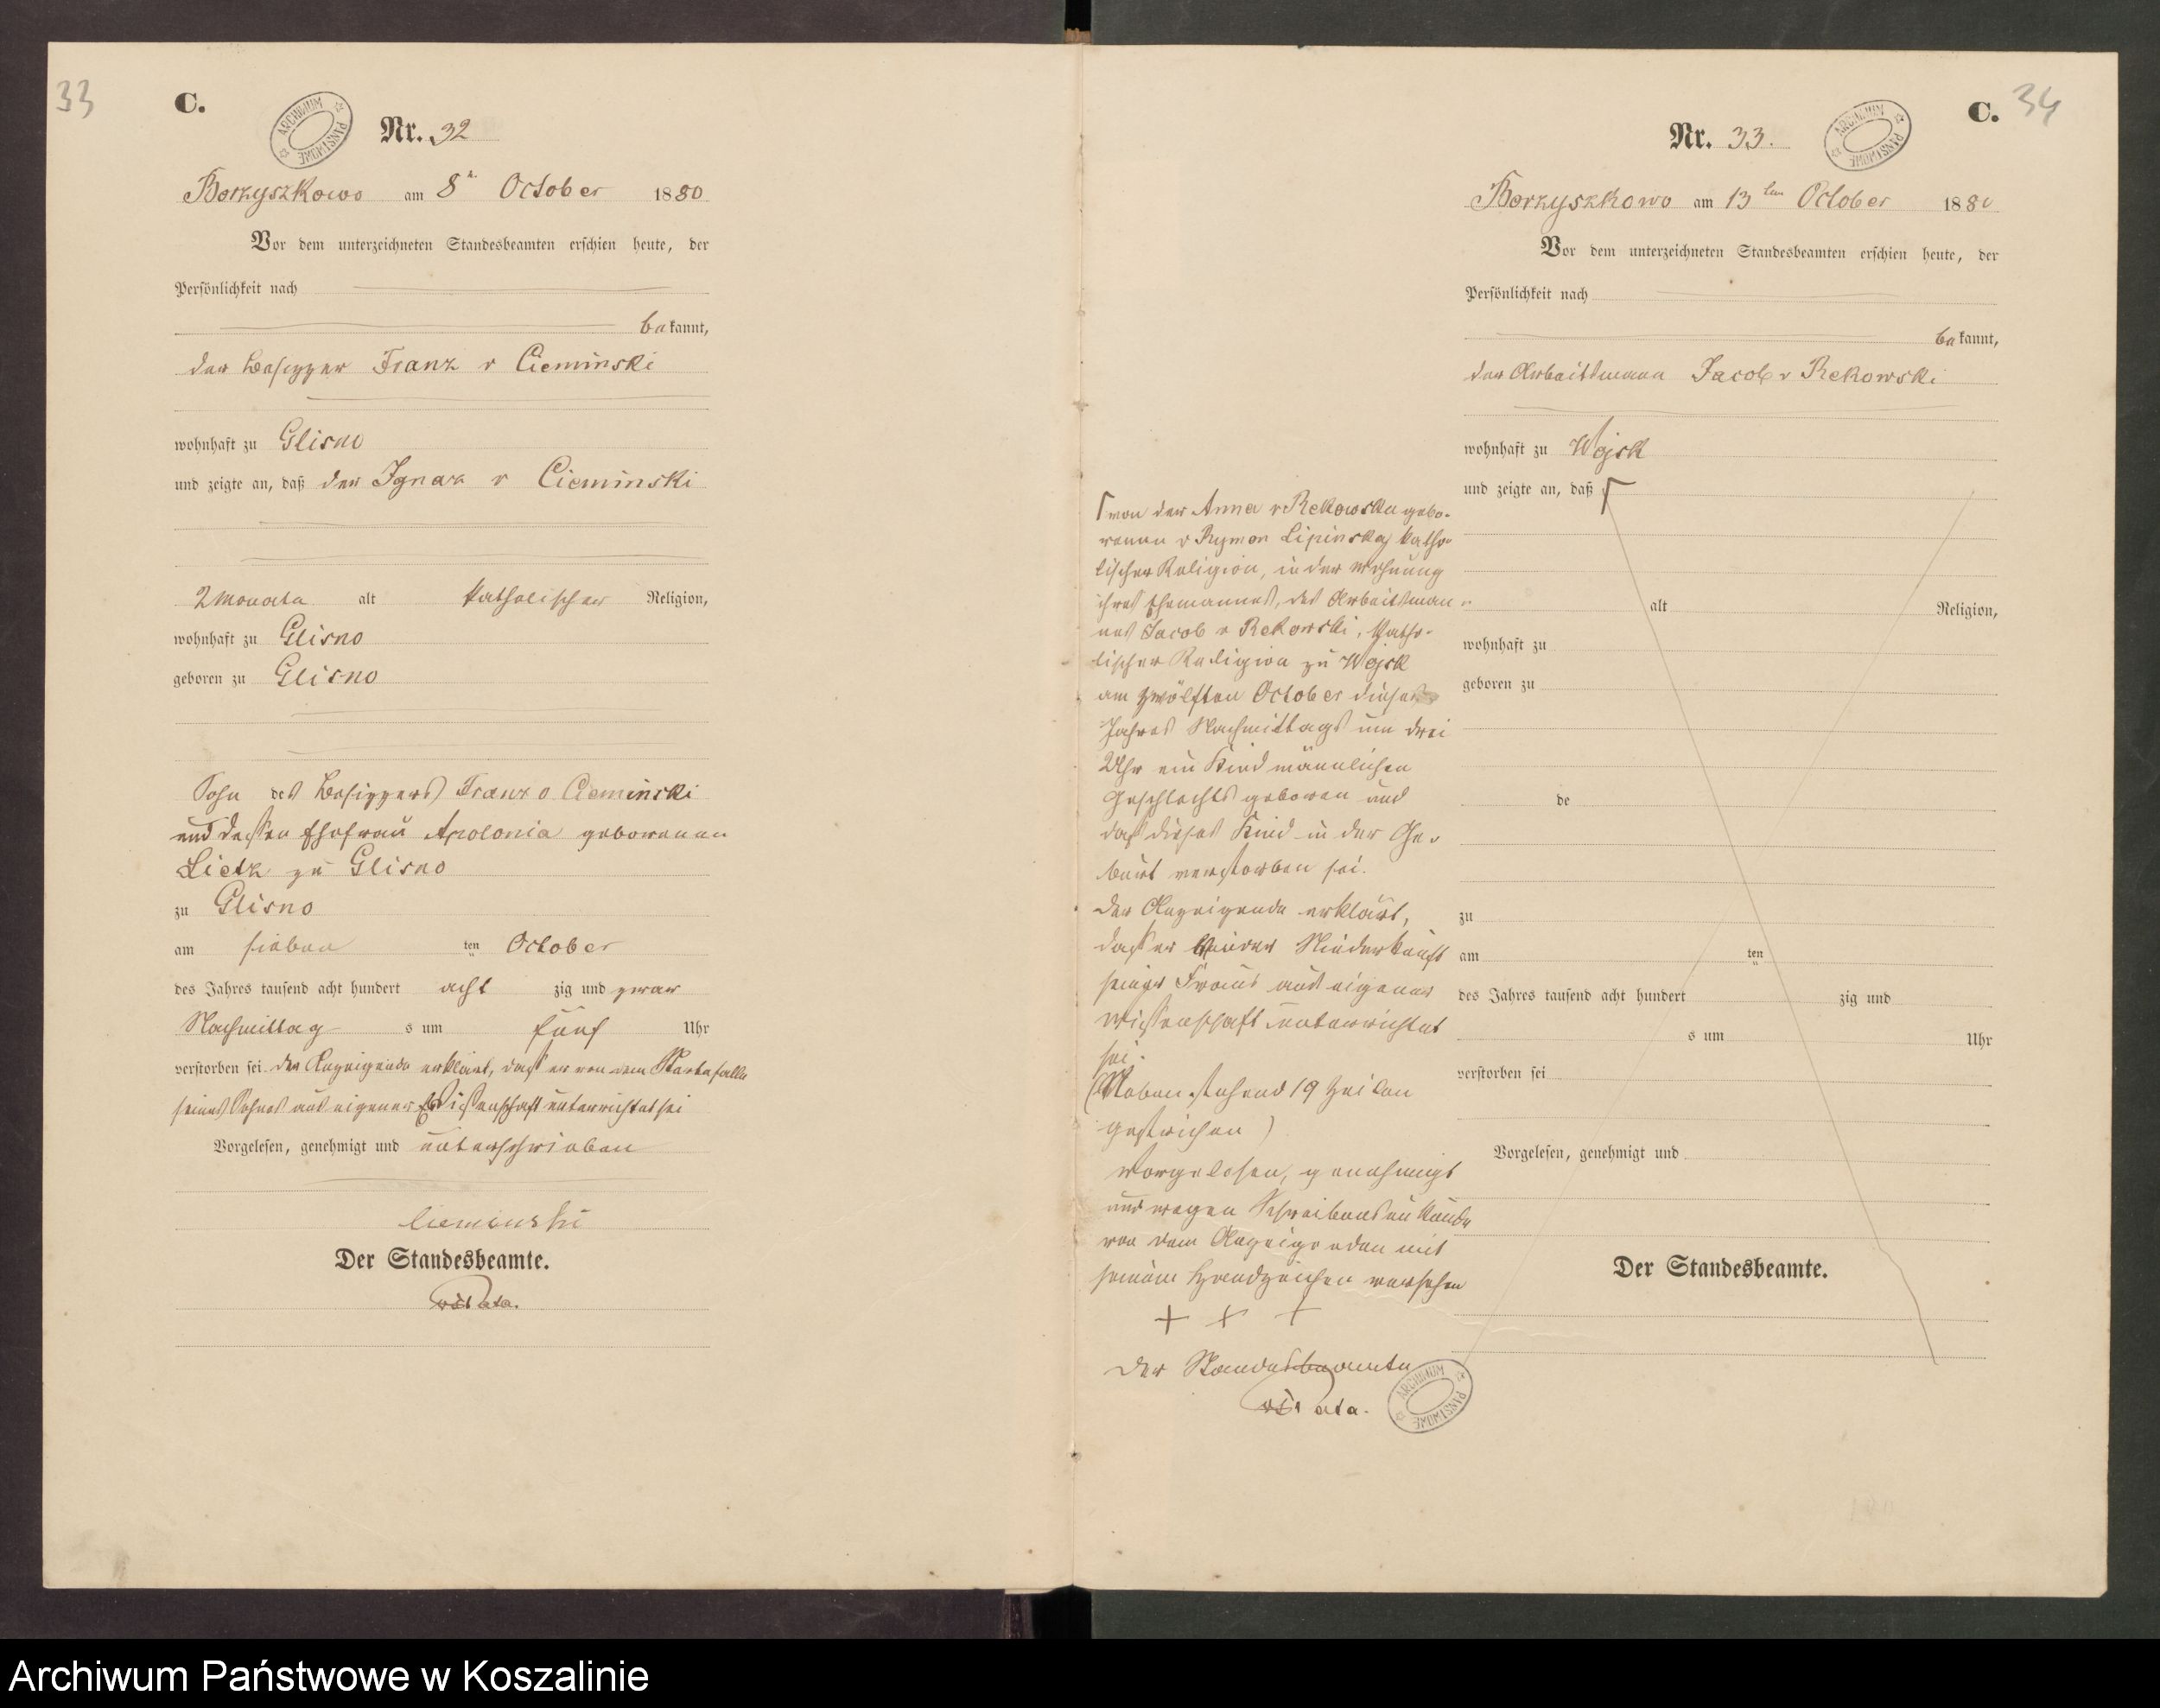 33
C.
ARCHIWUM PAŃSTWOWE
Nr. 32
Borzyszkowo am 8t October 1880
Vor dem unterzeichneten Standesbeamten erschien heute, der
Persönlichkeit nach
bekannt,
der Besitzer Franz v Cieminski
wohnhaft zu Glisno
und zeigte an, daß der Ignaz v Cieminski
2 Monate alt katholischer Religion,
wohnhaft zu Glisno
geboren zu Glisno
Sohn des Besitzers Franz v Cieminski
und dessen Ehefrau Apolonia geborenen
Lietz zu Glisno
zu Glisno
am sieben ten October
des Jahres tausend acht hundert acht zig und zwar
Nachmittag s um fünf Uhr
verstorben sei. Der Anzeigende erklärt, daß er von dem Sterbefalle
seines Sohnes aus eigener Wissenschaft unterrichtet sei
Vorgelesen, genehmigt und unterschrieben
Cieminski
Der Standesbeamte.
34
C.
ARCHIWUM PAŃSTWOWE
Nr. 33.
Borzyszkowo am 13ten October 1880
Vor dem unterzeichneten Standesbeamten erschien heute, der
Persönlichkeit nach
bekannt,
der Arbeitsmann Jacob v Rekowski
wohnhaft zu Wojsk
und zeigte an, daß
alt Religion,
wohnhaft zu
geboren zu
de
zu
am ten
des Jahres tausend acht hundert zig und
s um Uhr
verstorben sei
Vorgelesen, genehmigt und
Der Standesbeamte.
von der Anna v Rekowska gebo-
renen v Rymon Lipinska, katho-
lischer Religion, in der Wohnung
ihres Ehemannes, des Arbeitsman-
nes Jacob v Rekowski, katho-
lischer Religion zu Wojsk
am zwölften October dieses
Jahres Nachmittags um drei
Uhr ein Kind männlichen
Geschlechts geboren und
daß dieses Kind in der Ge-
burt verstorben sei.
Der Anzeigende erklärt,
daß er von der Niederkunft
seiner Frau aus eigener
Wissenschaft unterrichtet
sei.
(Nebenstehend 19 Zeilen
gestrichen)
Vorgelesen, genehmigt
und wegen Schreibensunkunde
von dem Anzeigenden mit
seinem Handzeichen versehen
+ + +
Der Standesbeamte
ARCHIWUM PAŃSTWOWE
Archiwum Państwowe w Koszalinie